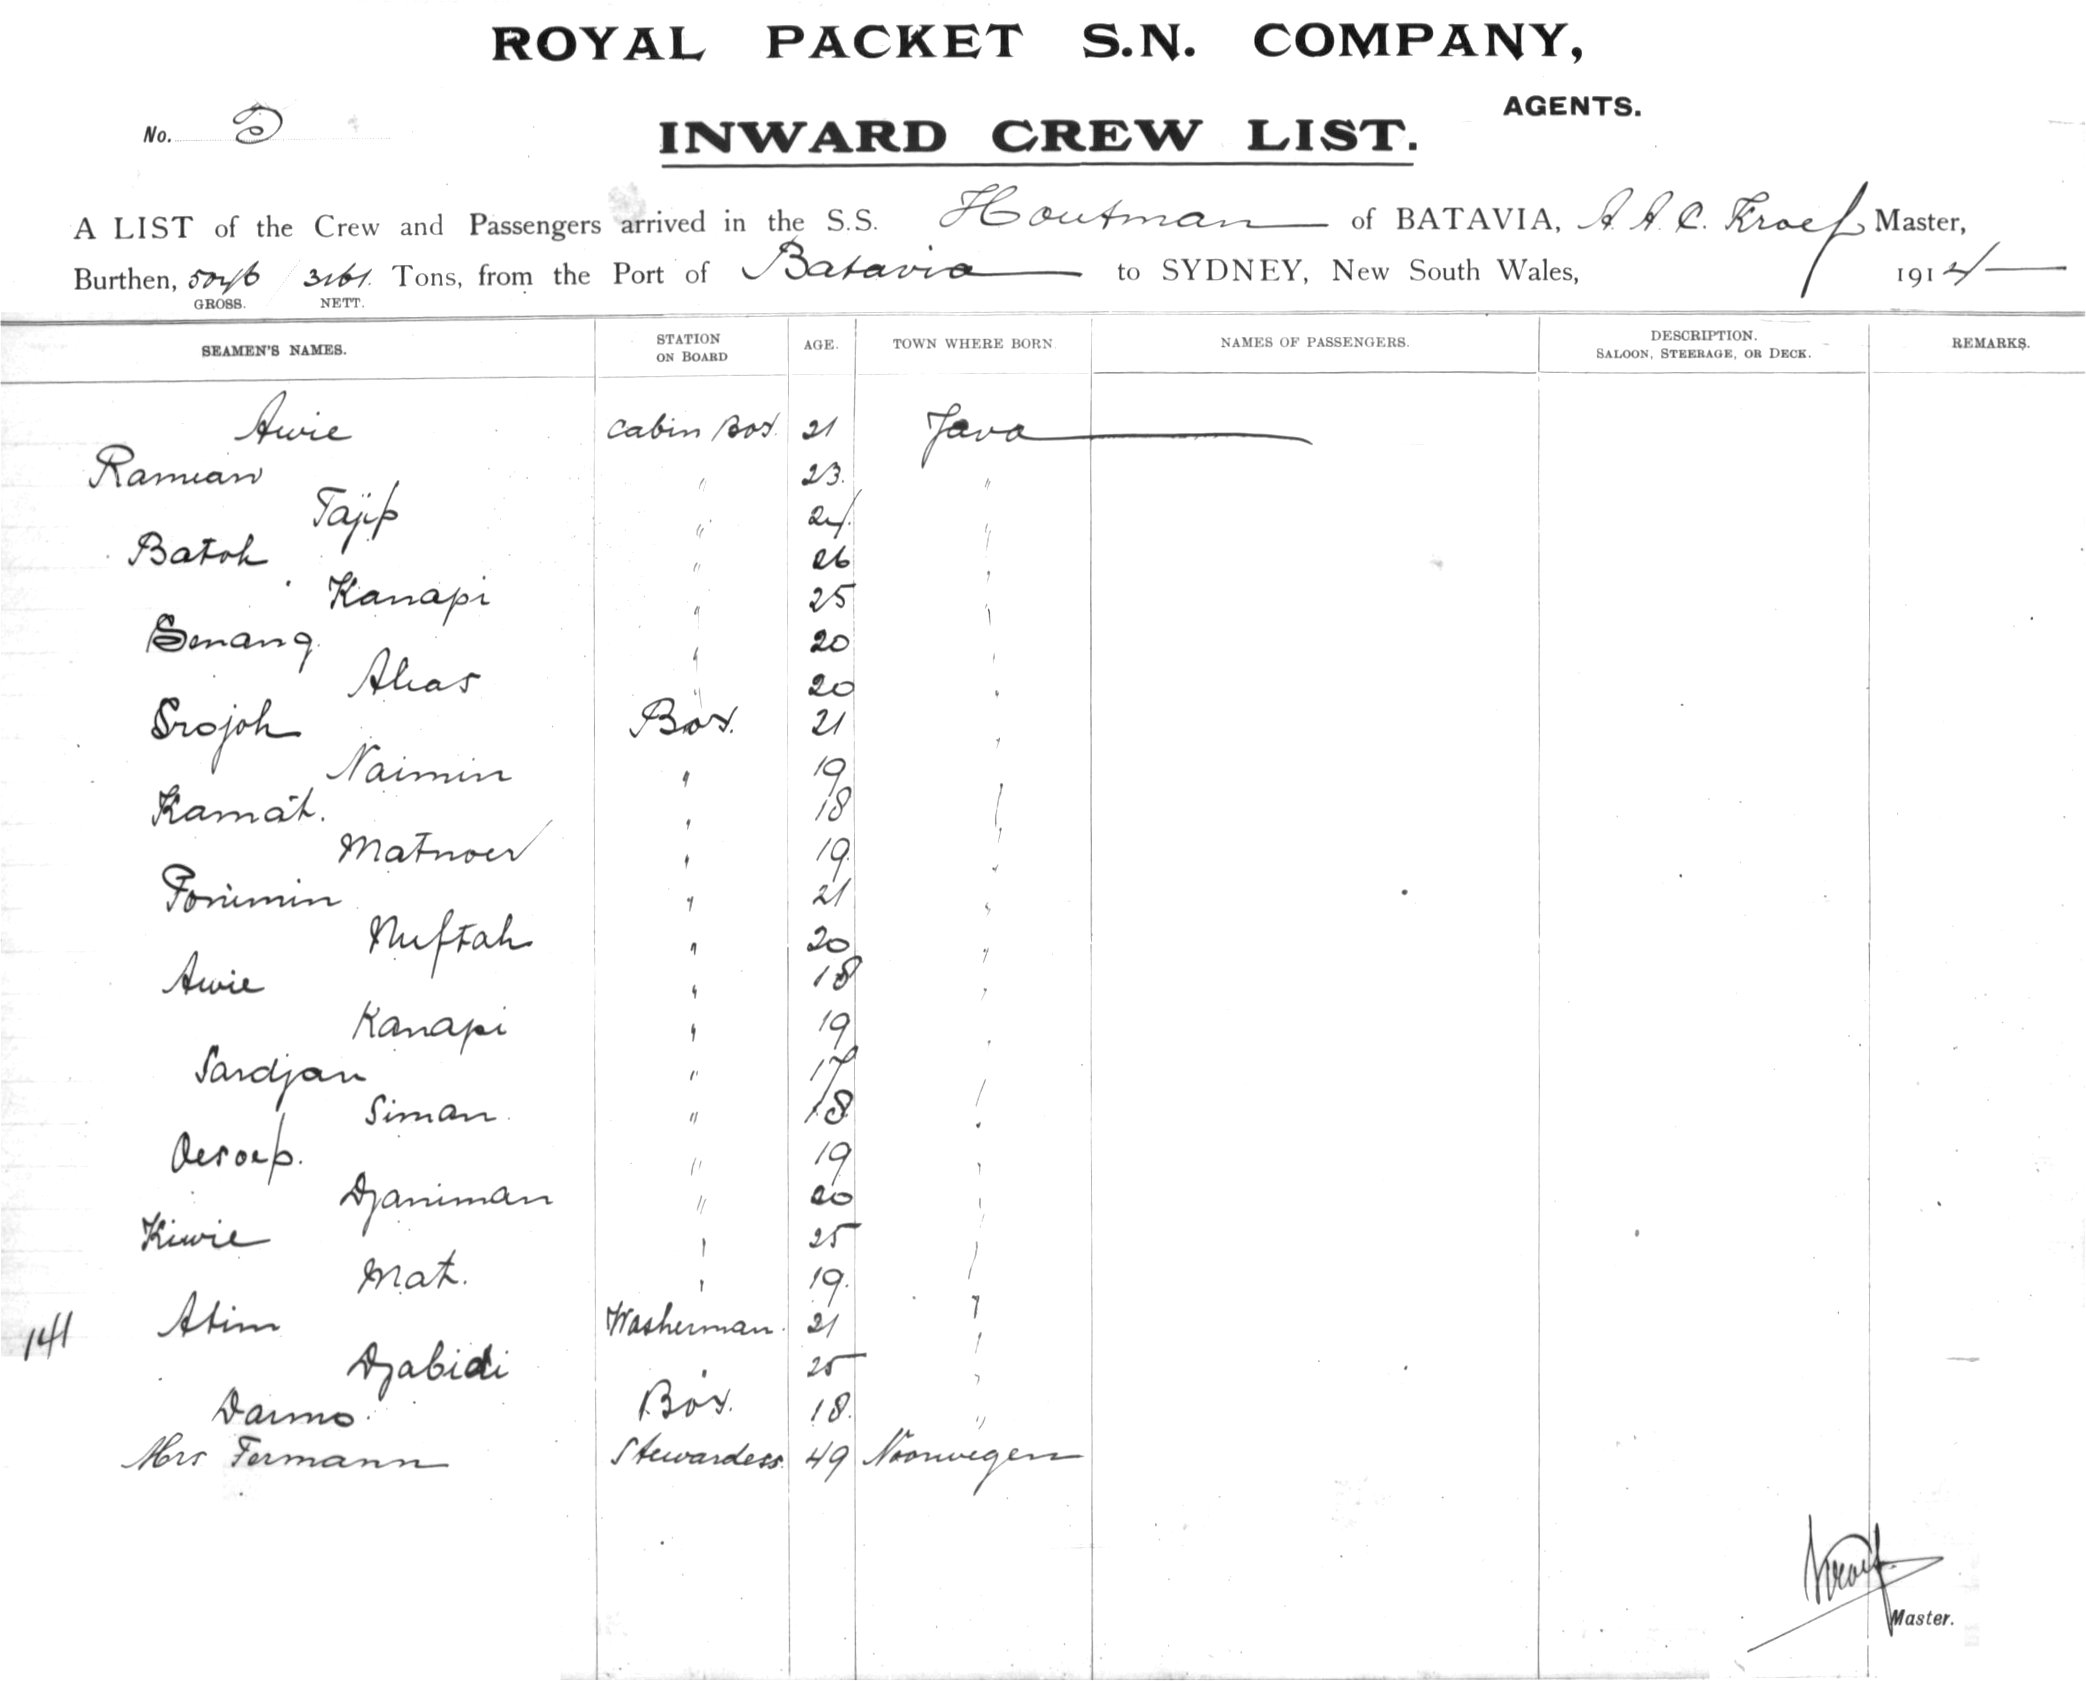 ROYAL PACKET S.N. COMPANY,
AGENTS.
No. 5
INWARD CREW LIST.
A LIST of the Crew and Passengers arrived in the S.S. Houtman of BATAVIA, A. A. C. Kroef Master,
Burthen, 5046 3161 Tons, from the Port of Batavia to SYDNEY, New South Wales, 1914
GROSS. NETT.
SEAMEN'S NAMES. STATION ON BOARD AGE. TOWN WHERE BORN NAMES OF PASSENGERS. DESCRIPTION. SALOON, STEERAGE, OR DECK. REMARKS.
Awie Cabin Boy. 21 Java
Ramean " 23. "
Tajip " 24. "
Batok " 26 "
Kanapi " 25 "
Senang. " 20 "
Alias " 20 "
Srojoh Boy. 21 "
Naimin " 19 "
Kamat. " 18 "
Matnoer " 19. "
Ponimin " 21 "
Muftah " 20 "
Awie " 18 "
Kanapi " 19 "
Sardjan " 17 "
Siman. " 18 "
Oesoep. " 19 "
Djaniman " 20 "
Kiwie " 25 "
Mat. " 19. "
141 Atim Washerman. 21 "
Djabidi " 25 "
Darmo. Boy. 18. "
Mrs Fermann Stewardess. 49 Noorwegen
Kroef
Master.